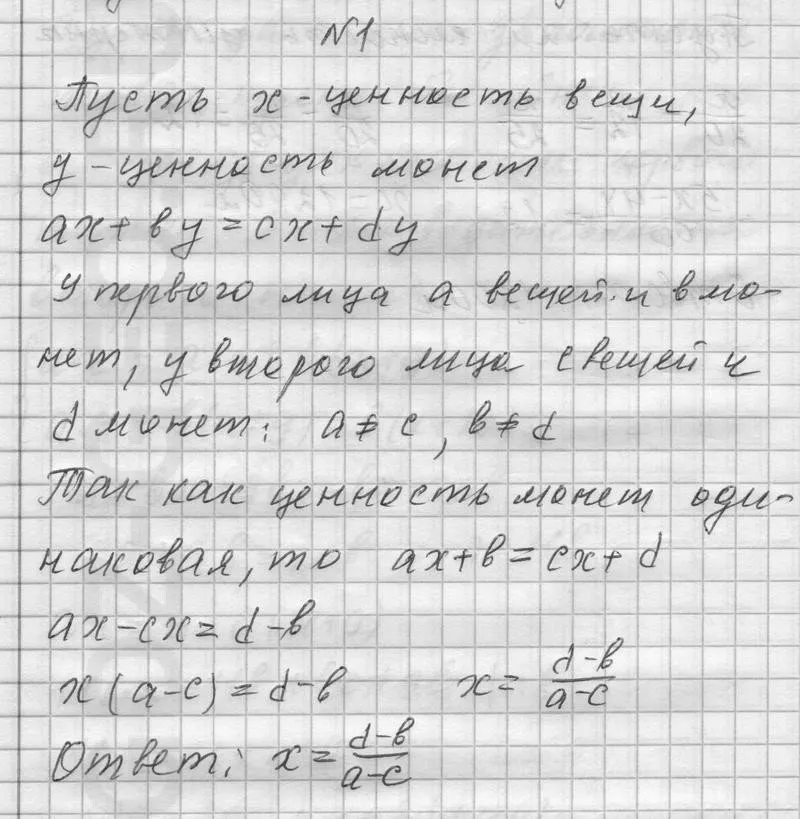 №1
Пусть x - ценность вещи,
y - ценность монет
ax + by = cx + dy
У первого лица a вещей и b мо-
нет, у второго лица c вещей и
d монет: a ≠ c, b ≠ d
Так как ценность монет оди-
наковая, то ax + b = cx + d
ax - cx = d - b
x(a - c) = d - b x = (d - b)/(a - c)
Ответ: x = (d - b)/(a - c)